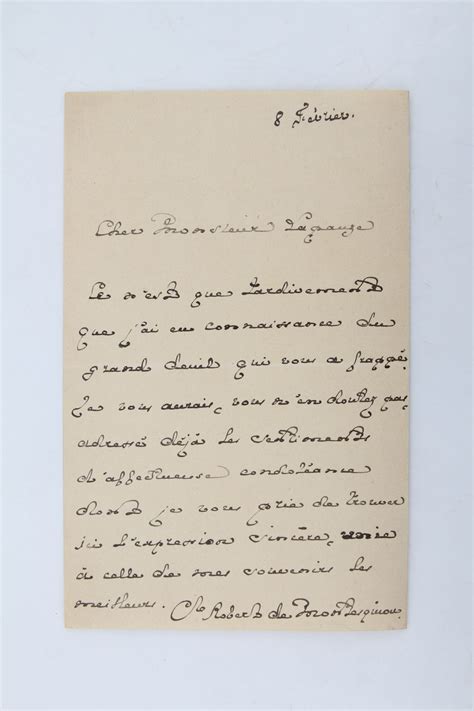 8 Février.
Cher Monsieur Lapauze
Ce n'est que tardivement
que j'ai eu connaissance du
grand deuil qui vous a frappé.
Je vous aurais, vous n'en doutez pas,
adressé déjà les sentiments
d'affectueuse condoléance
dont je vous prie de trouver
ici l'expression sincère, unie
à celle de mes souvenirs les
meilleurs. Cte Robert de Montesquiou.